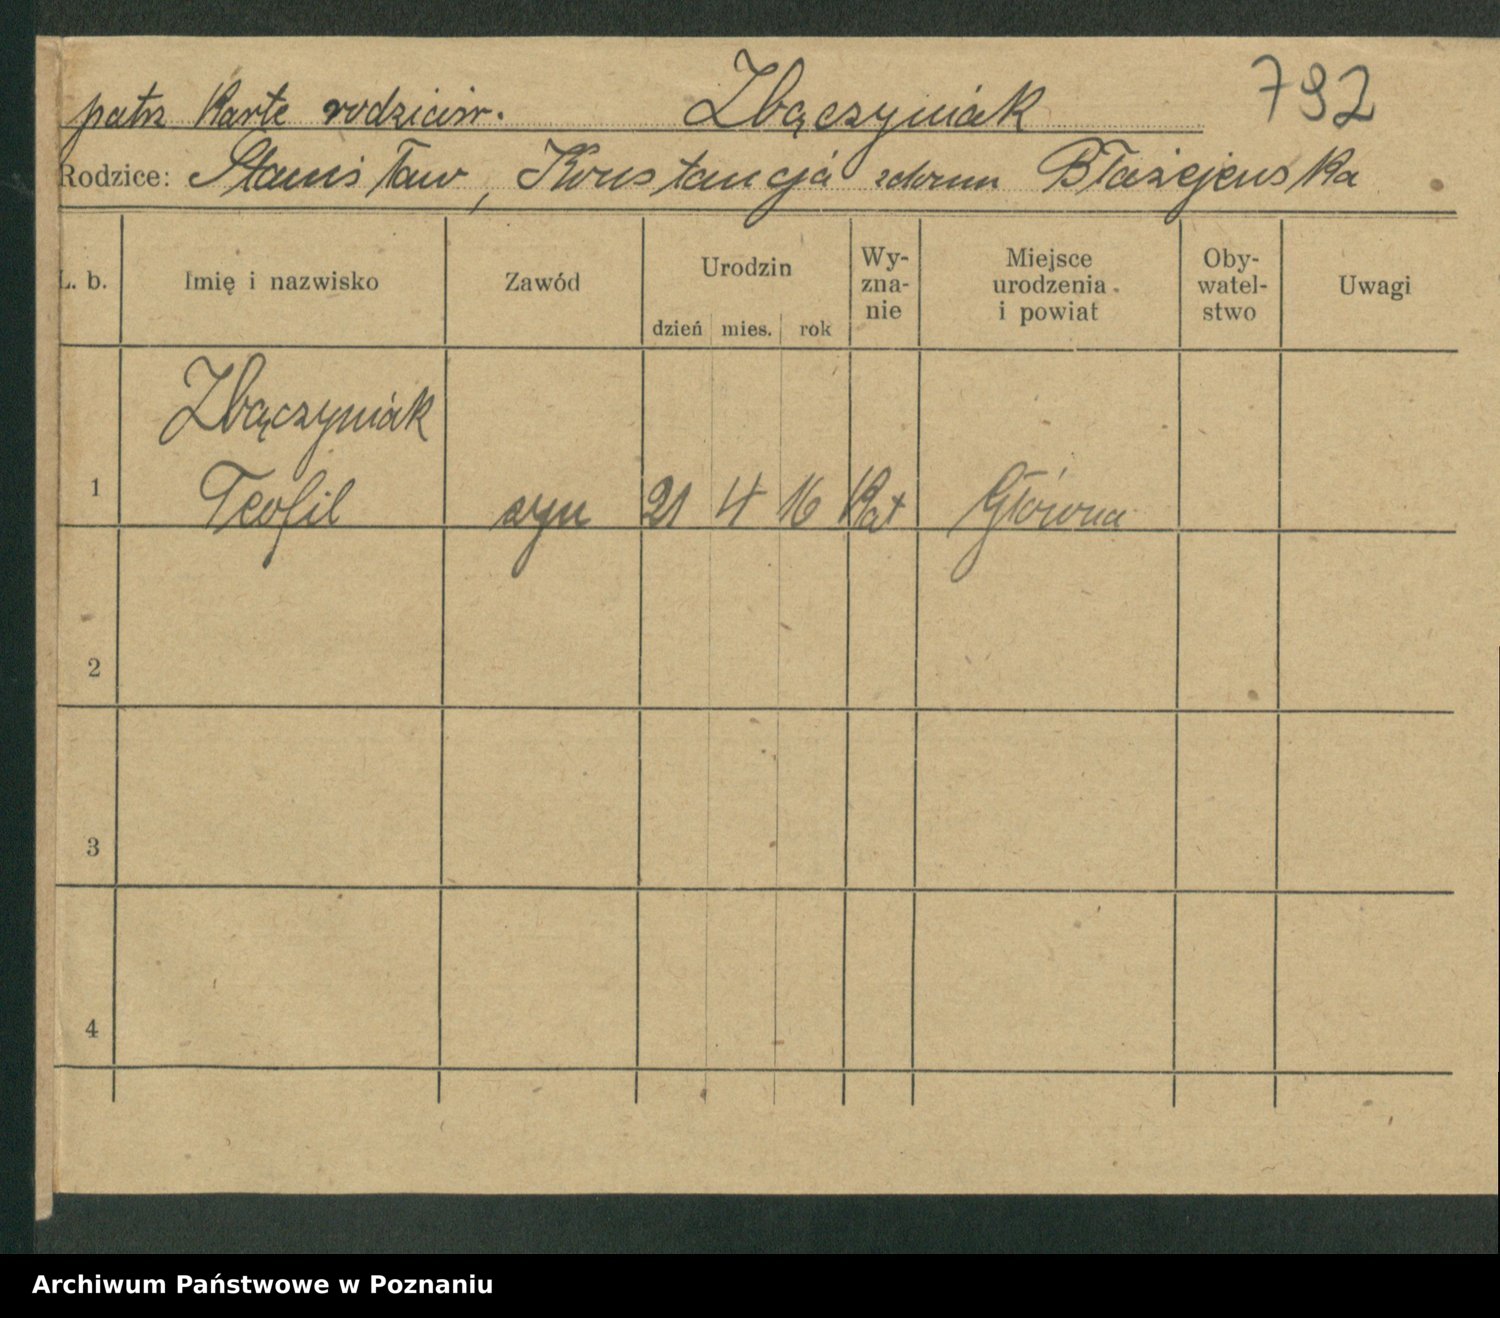 patrz Kartę rodziców. Zbączyniak 792
Rodzice: Stanisław, Konstancja zdomu Błażejewska
L. b. Imię i nazwisko Zawód Urodzin dzień mies. rok Wy-zna-nie Miejsce urodzenia i powiat Oby-watel-stwo Uwagi
Zbączyniak
1 Teofil syn 21 4 16 Kat Główna
2
3
4
Archiwum Państwowe w Poznaniu